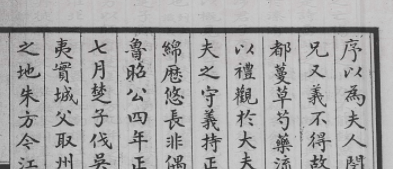 序以為夫人閔
兄又義不得故
都蔓草芍藥流
以禮觀於大夫
夫之守義持正
綿歷悠長非偶
魯昭公四年正
七月楚子伐吳
夷實城父取州
之地朱方今江